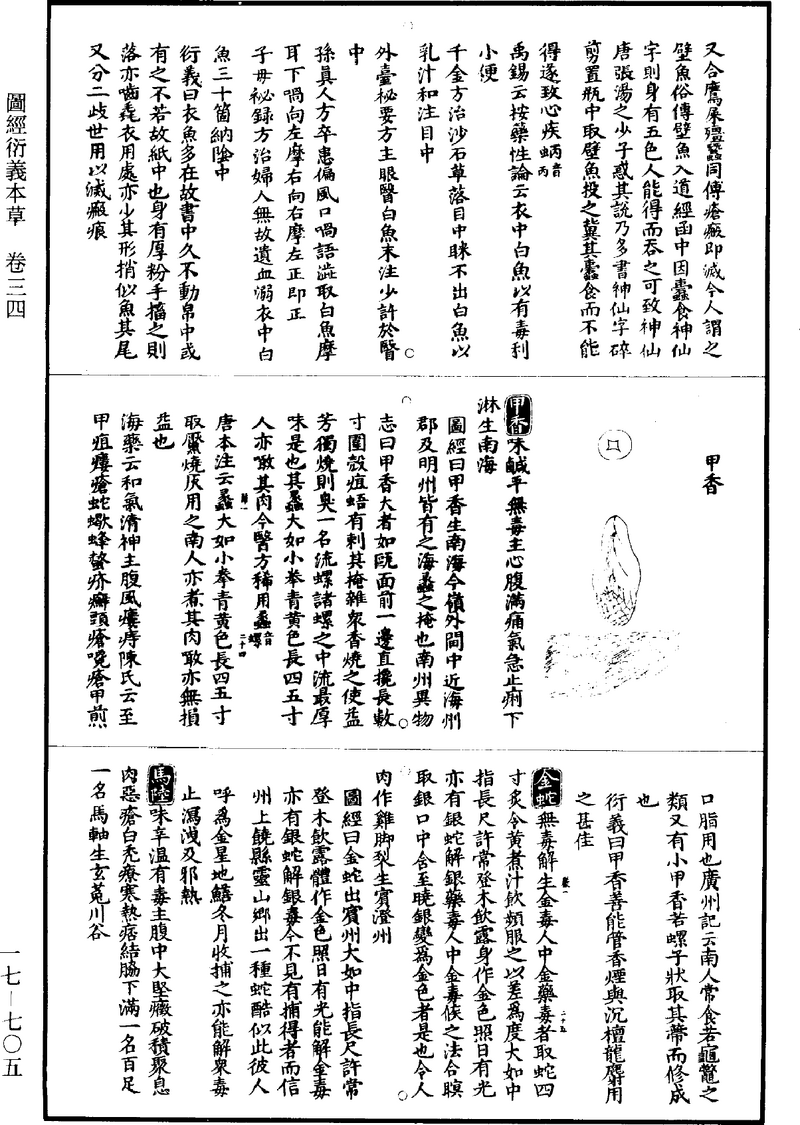 圖經衍義本草　卷三四
又合鷹屎殭蠶同傅瘡瘢即滅令人謂之
壁魚俗傳壁魚入道經函中因蠹食神仙
字則身有五色人能得而吞之可致神仙
唐張湯之少子惑其說乃多書神仙字碎
剪置瓶中取壁魚投之冀其蠹食而不能
得遂致心疾蛃音丙
禹錫云按藥性論云衣中白魚以有毒利
小便
千金方治沙石草落目中眯不出白魚以
乳汁和注目中
外臺秘要方主眼瞖白魚末注少許於瞖
中
孫真人方卒患偏風口喎語澁取白魚摩
耳下喎向左摩右向右摩左正即正
子母祕録方治婦人無故遺血溺衣中白
魚三十箇納陰中
衍義曰衣魚多在故書中久不動帛中或
有之不若故紙中也身有厚粉手搐之則
落亦嚙毳衣用處亦少其形稍似魚其尾
又分二歧世用以滅瘢痕
甲香
甲香味鹹平無毒主心腹滿痛氣急止痢下
淋生南海
圖經曰甲香生南海今嶺外閩中近海州
郡及明州皆有之海蠡之掩也南州異物
志曰甲香大者如甌面前一邊直攙長數
寸圍殼岨峿有刺其掩雜衆香燒之使益
芳獨燒則臭一名流螺諸螺之中流最厚
味是也其蠡大如小拳青黄色長四五寸
人亦噉其肉今醫方稀用蠡音螺
二十四
唐本注云蠡大如小拳青黄色長四五寸
取靨燒灰用之南人亦煮其肉噉亦無損
益也
海藥云和氣清神主腹風瘻痔陳氏云主
甲疽瘻瘡蛇蠍蜂螫疥癬頭瘡嚵瘡甲煎
口脂用也廣州記云南人常食若龜鼈之
類又有小甲香若螺子狀取其蒂而修成
也
衍義曰甲香善能管香煙與沉檀龍麝用
之甚佳
二十五
金蛇無毒解生金毒人中金藥毒者取蛇四
寸炙令黄煮汁飲頻服之以差爲度大如中
指長尺許常登木飲露身作金色照日有光
亦有銀蛇解銀藥毒人中金毒候之法合瞑
取銀口中含至曉銀變爲金色者是也令人
肉作雞脚裂生賓澄州
圖經曰金蛇出賓州大如中指長尺許常
登木飲露體作金色照日有光能解金毒
亦有銀蛇解銀毒今不見有捕得者而信
州上饒縣靈山鄉出一種蛇酷似此彼人
呼爲金星地鱔冬月收捕之亦能解衆毒
止瀉洩及邪熱
馬陸味辛温有毒主腹中大堅癥破積聚息
肉惡瘡白禿療寒熱痞結脇下滿一名百足
一名馬軸生玄菟川谷
一七—七〇五